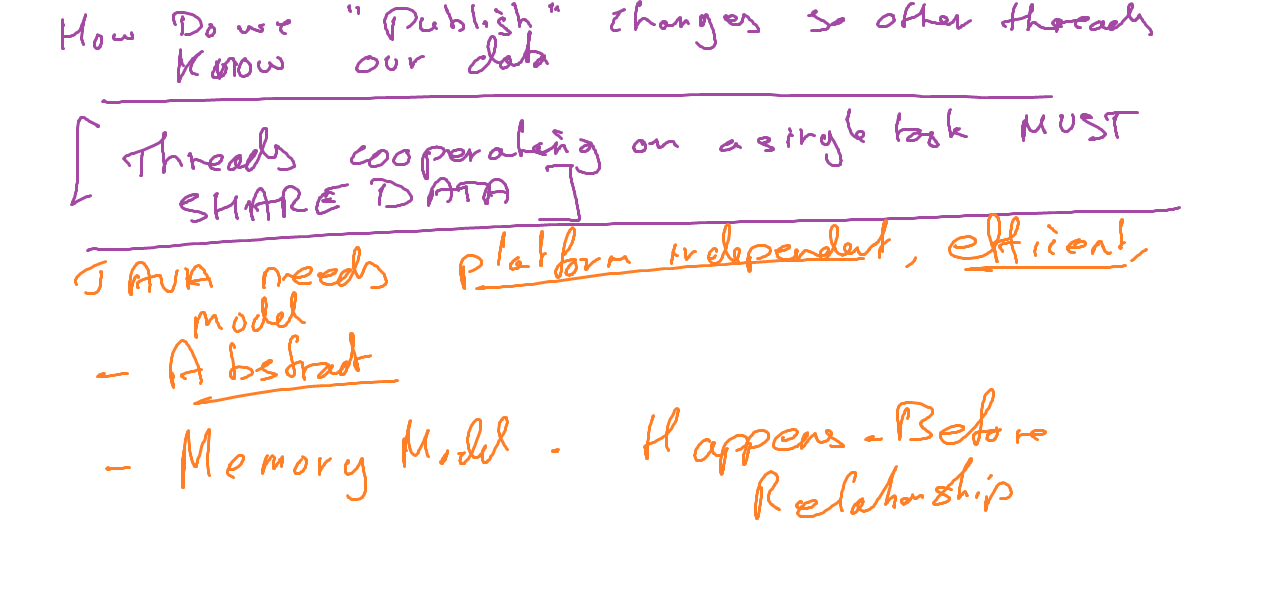 How Do we "Publish" changes so other threads
Know our data
[ Threads cooperating on a single task MUST
SHARE DATA ]
JAVA needs platform independent, efficient,
model
- Abstract
- Memory Model. Happens-Before
Relationship